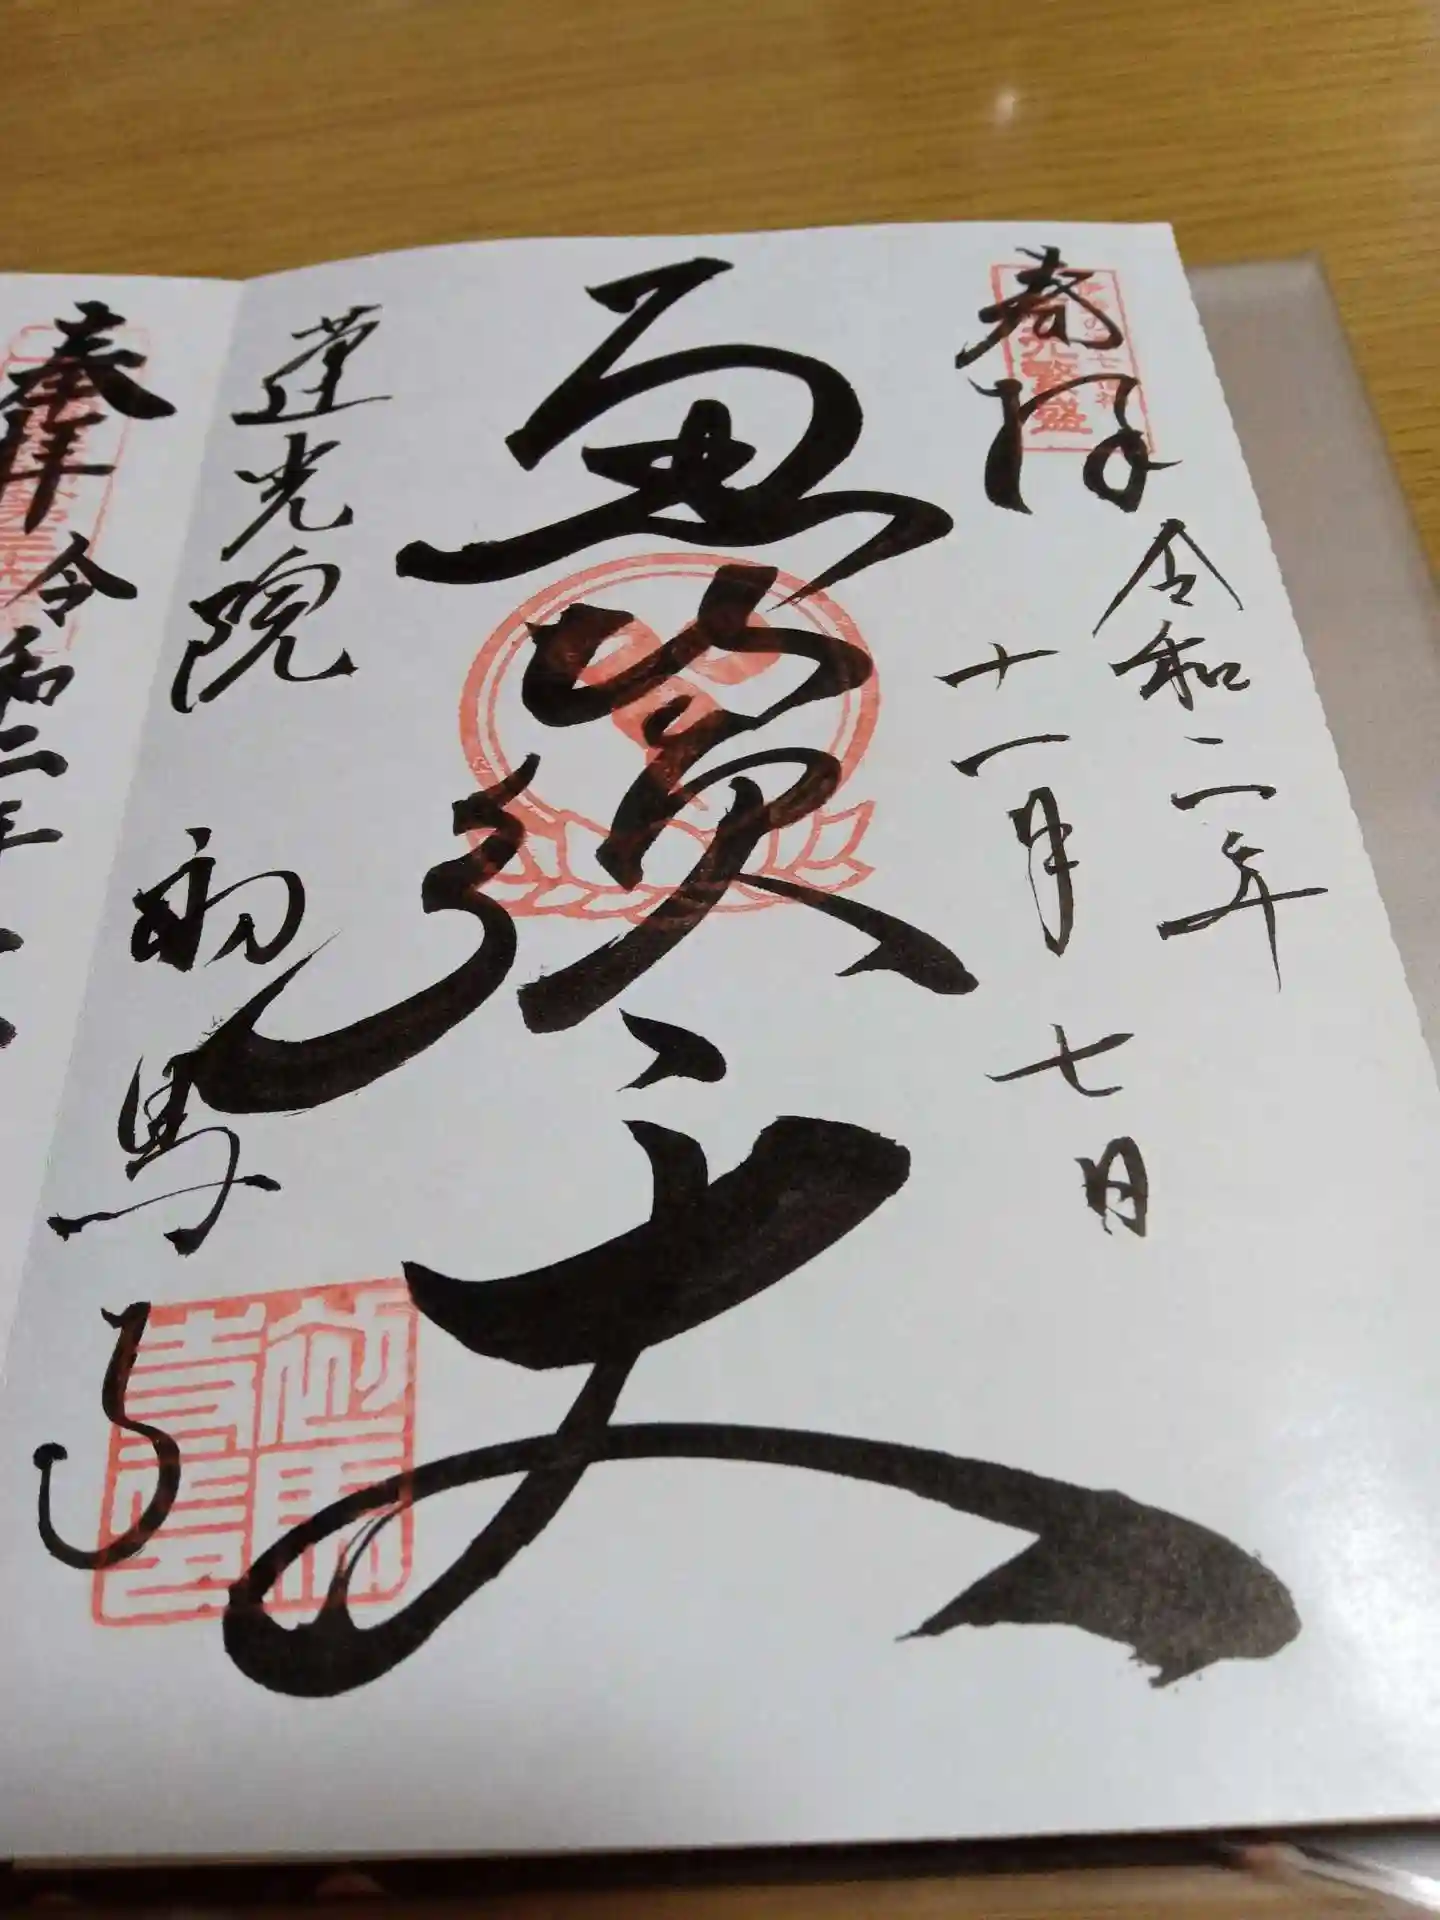 奉拝
令和二年
十一月七日
恵比須天
蓮光院
初馬寺
初馬
寺印
奉拝
令和二年